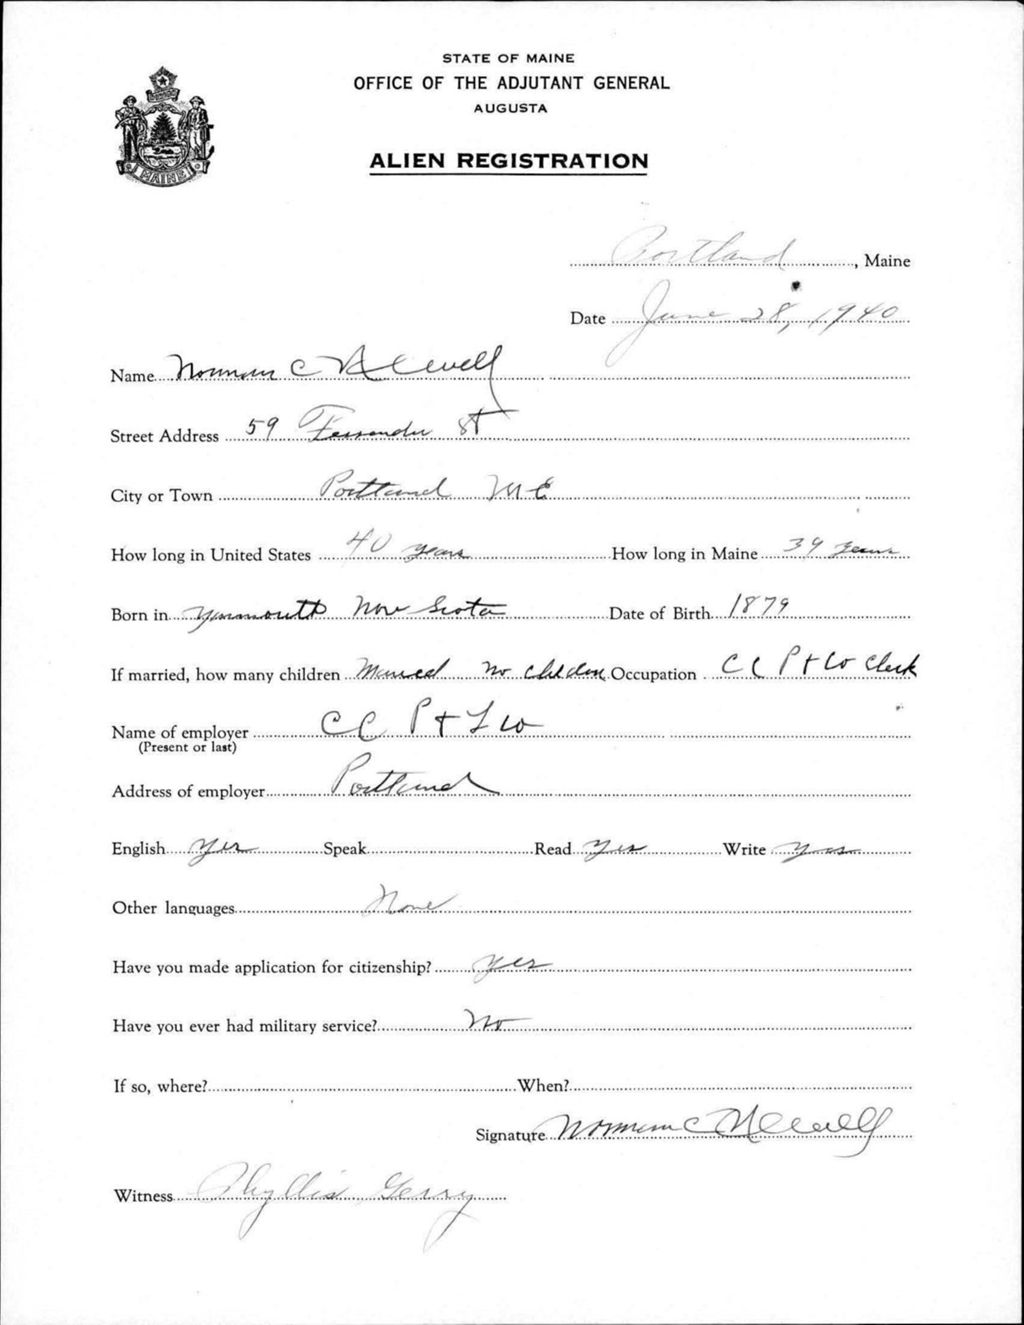 STATE OF MAINE
OFFICE OF THE ADJUTANT GENERAL
AUGUSTA
MAINE
ALIEN REGISTRATION
Portland, Maine
Date June 28, 1940
Name Norman C Newell
Street Address 59 Fessenden St
City or Town Portland ME
How long in United States 40 years How long in Maine 39 years
Born in Yarmouth Nov Scotia Date of Birth 1879
If married, how many children Married no children Occupation C C P + Co Clerk
Name of employer C C P + L Co
(Present or last)
Address of employer Portland
English Yes Speak Read Yes Write Yes
Other languages None
Have you made application for citizenship? Yes
Have you ever had military service? No
If so, where? When?
Signature Norman C Newell
Witness Phyllis Gerry